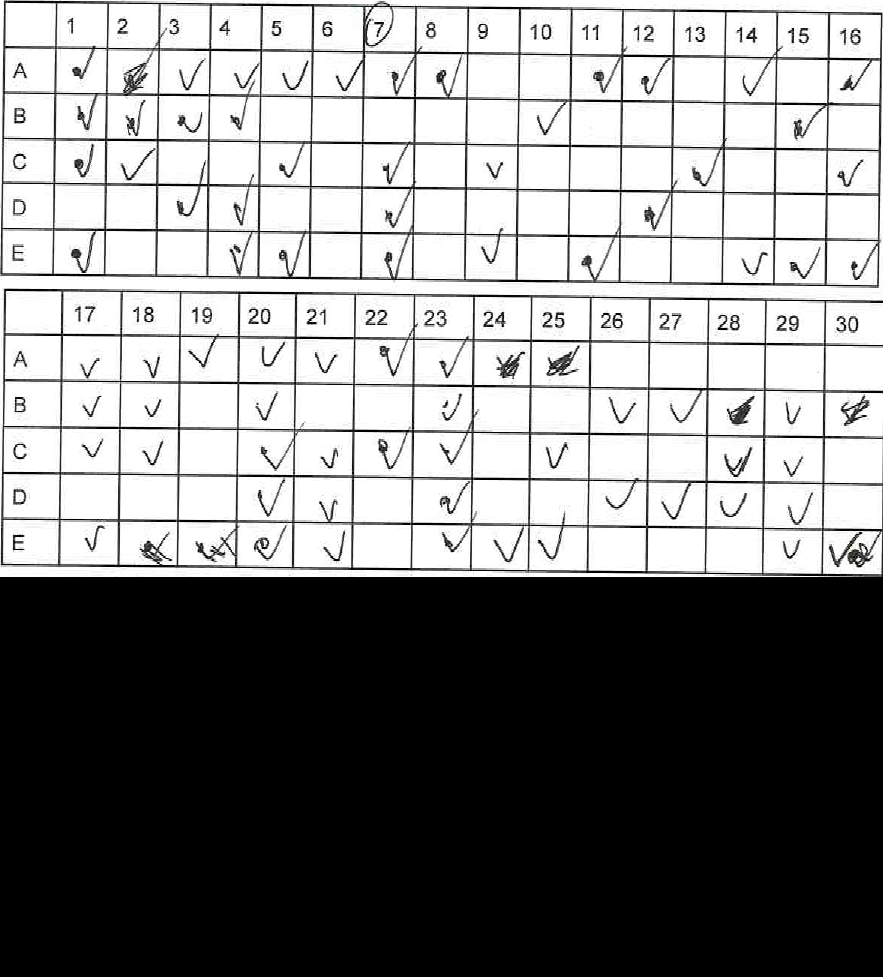 1 2 3 4 5 6 7 8 9 10 11 12 13 14 15 16
A ✓ ✓ ✓ ✓ ✓ ✓ ✓ ✓ ✓ ✓ ✓
B ✓ ✓ ✓ ✓ ✓ ✓
C ✓ ✓ ✓ ✓ ✓ ✓ ✓
D ✓ ✓ ✓ ✓
E ✓ ✓ ✓ ✓ ✓ ✓ ✓ ✓ ✓
17 18 19 20 21 22 23 24 25 26 27 28 29 30
A ✓ ✓ ✓ ✓ ✓ ✓ ✓
B ✓ ✓ ✓ ✓ ✓ ✓ ✓
C ✓ ✓ ✓ ✓ ✓ ✓ ✓ ✓ ✓
D ✓ ✓ ✓ ✓ ✓ ✓ ✓
E ✓ ✓ ✓ ✓ ✓ ✓ ✓ ✓